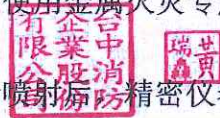 使用金属火灾专
台中消防
企業股份
有限公司
黄
瑞
喷射后，精密仪